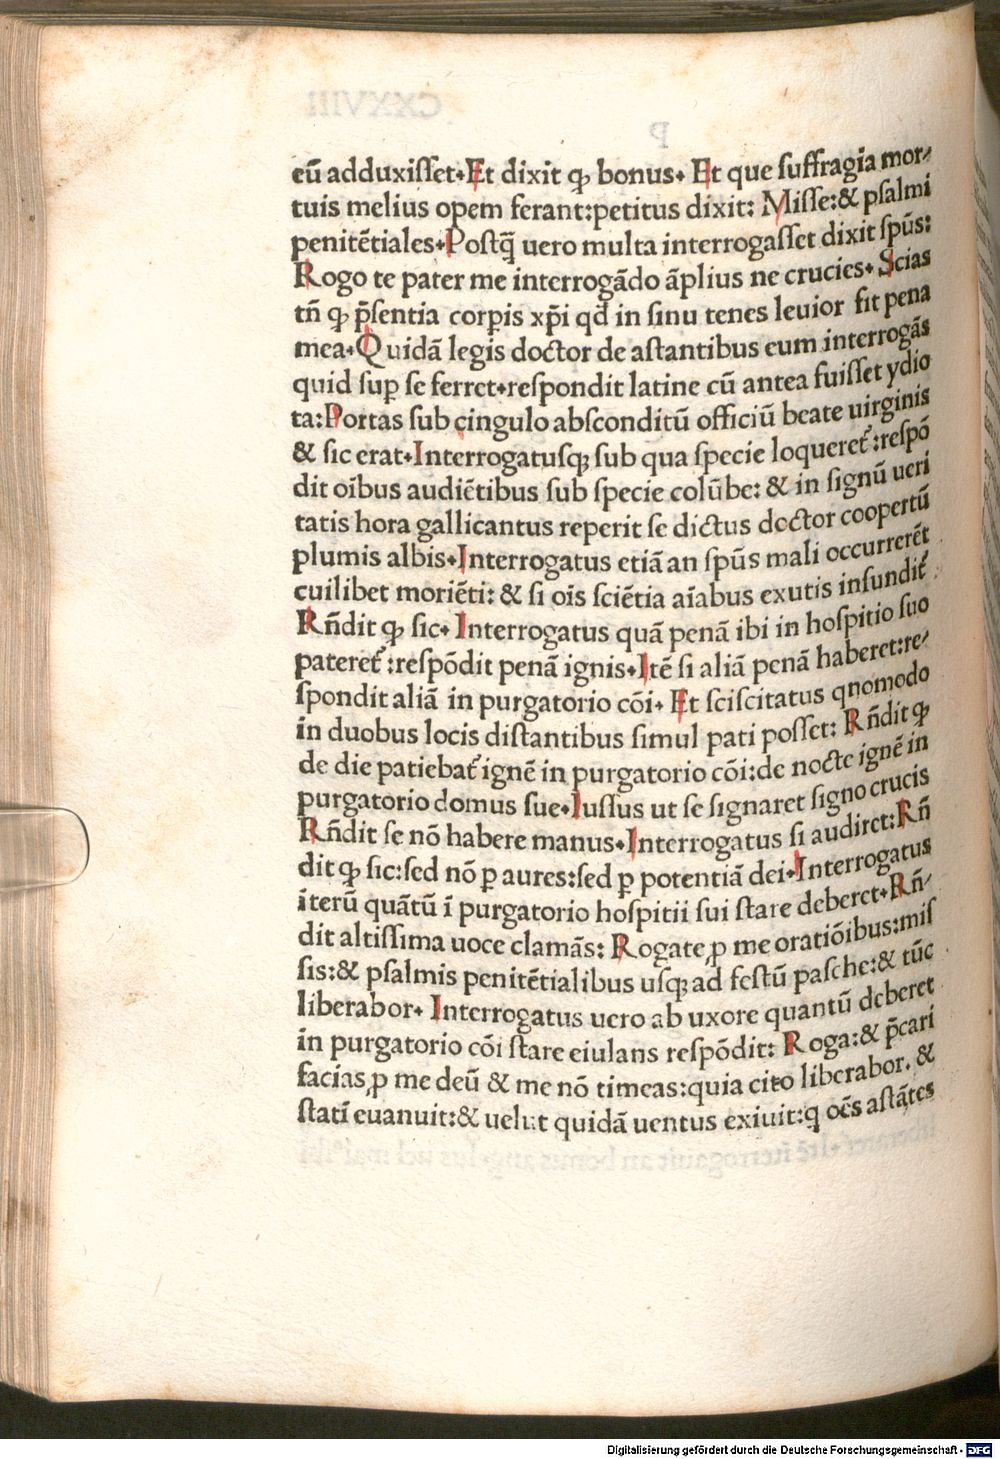 eū adduxiſſet. Et dixit ꝙ bonus. Et que ſuffragia mor-
tuis melius opem ferant: petitus dixit: Miſſe: & pſalmi
penitētiales. Poſtq̄ uero multa interrogaſſet dixit ſpūs:
Rogo te pater me interrogādo āplius ne crucies. Scias
tn̄ ꝙ p̄ſentia corꝑis xp̄i qd̄ in ſinu tenes leuior fit pena
mea. Quidā legis doctor de aſtantibus eum interrogās
quid ſuꝑ ſe ferret. reſpondit latine cū antea fuiſſet ydio
ta: Portas ſub cingulo abſconditū officiū beate uirginis
& ſic erat. Interrogatuſqꝫ ſub qua ſpecie loqueret᷑: reſpō
dit oībus audiētibus ſub ſpecie colūbe: & in ſignū ueri
tatis hora gallicantus reperit ſe dictus doctor coopertū
plumis albis. Interrogatus etiā an ſpūs mali occurrerēt
cuilibet moriēti: & ſi oīs ſciētia aīabus exutis infundit᷑
Rn̄dit ꝙ ſic. Interrogatus quā penā ibi in hoſpitio ſuo
pateret᷑: reſpōdit penā ignis. Itē ſi aliā penā haberet: re-
ſpondit aliā in purgatorio cōi. Et ſciſcitatus qnomodo
in duobus locis diſtantibus ſimul pati poſſet: Rn̄dit ꝙ
de die patiebat᷑ ignē in purgatorio cōi: de nocte ignē in
purgatorio domus ſue. Iuſſus ut ſe ſignaret ſigno crucis
Rn̄dit ſe nō habere manus. Interrogatus ſi audiret: Rn̄
dit ꝙ ſic: ſed nō ꝑ aures: ſed ꝑ potentiā dei. Interrogatus
iterū quātū ī purgatorio hoſpitii ſui ſtare deberet. Rn̄-
dit altiſſima uoce clamās: Rogate ꝓ me oratiōibus: miſ
ſis: & pſalmis penitētialibus uſqꝫ ad feſtū paſche: & tūc
liberabor. Interrogatus uero ab uxore quantū deberet
in purgatorio cōi ſtare eiulans reſpōdit: Roga: & p̄cari
facias ꝓ me deū & me nō timeas: quia cito liberabor. &
ſtatī euanuit: & uelut quidā uentus exiuit: q̄ oēs aſtātes
Digitalisierung gefördert durch die Deutsche Forschungsgemeinschaft - DFG